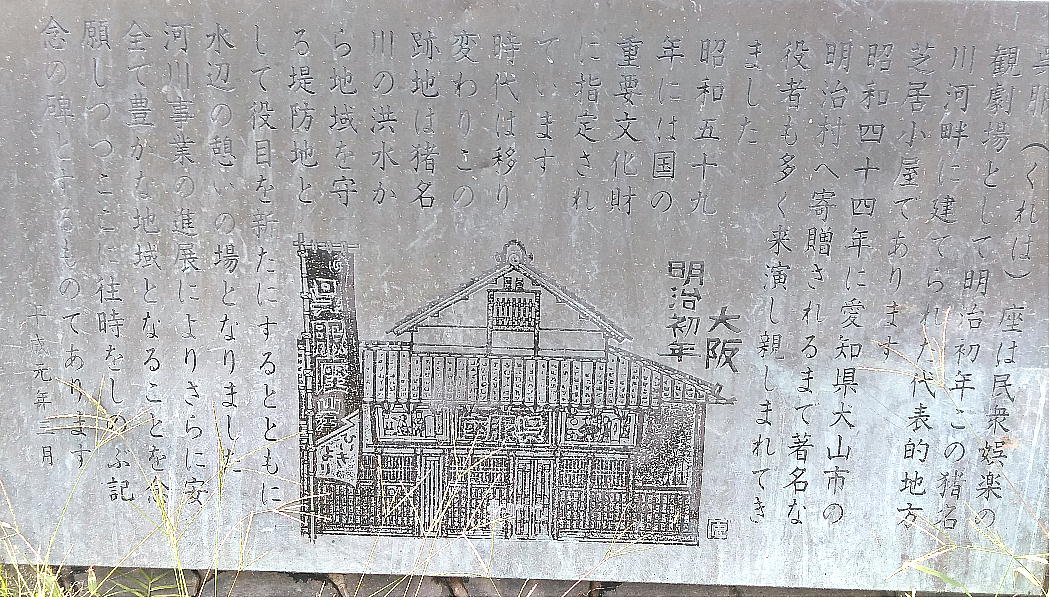 呉服(くれは)座は民衆娯楽の
観劇場として明治初年この猪名
川河畔に建てられた代表的地方
芝居小屋であります
昭和四十四年に愛知県犬山市の
明治村へ寄贈されるまで著名な
役者も多く来演し親しまれてき
ました
昭和五十九
年には国の
重要文化財
に指定され
ています
時代は移り
変わりこの
跡地は猪名
川の洪水か
ら地域を守
る堤防地と
して役目を新たにするとともに
水辺の憩いの場となりました
河川事業の進展によりさらに安
全で豊かな地域となることを念
願しつつここに往時をしのぶ記
念の碑とするものであります
平成元年三月
大阪
明治初年
呉服座
ひいき
より